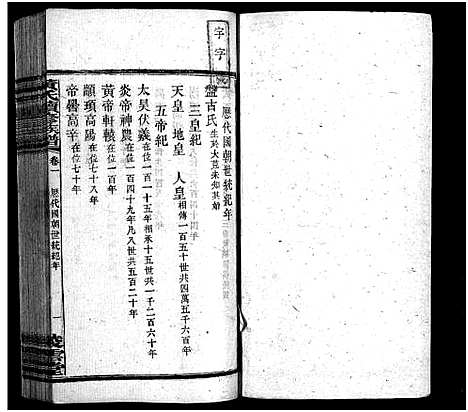 字字
歷代國朝世統紀年
盤古氏生於大荒未知其始
三皇紀
天皇 地皇 人皇相傳一百五十世共四萬五千六百年
五帝紀
太昊伏義在位一百一十五年相承十五世共一千二百六十年
炎帝神農在位一百四十九年凡八世共五百二十年
黃帝軒轅在位一百年
顓頊高陽在位七十八年
帝嚳高辛在位七十年
卷一
歷代國朝世統紀年
一